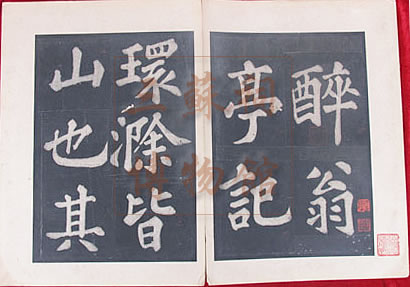 醉翁
亭記
環滁皆
山也其
三蘇祠
博物館